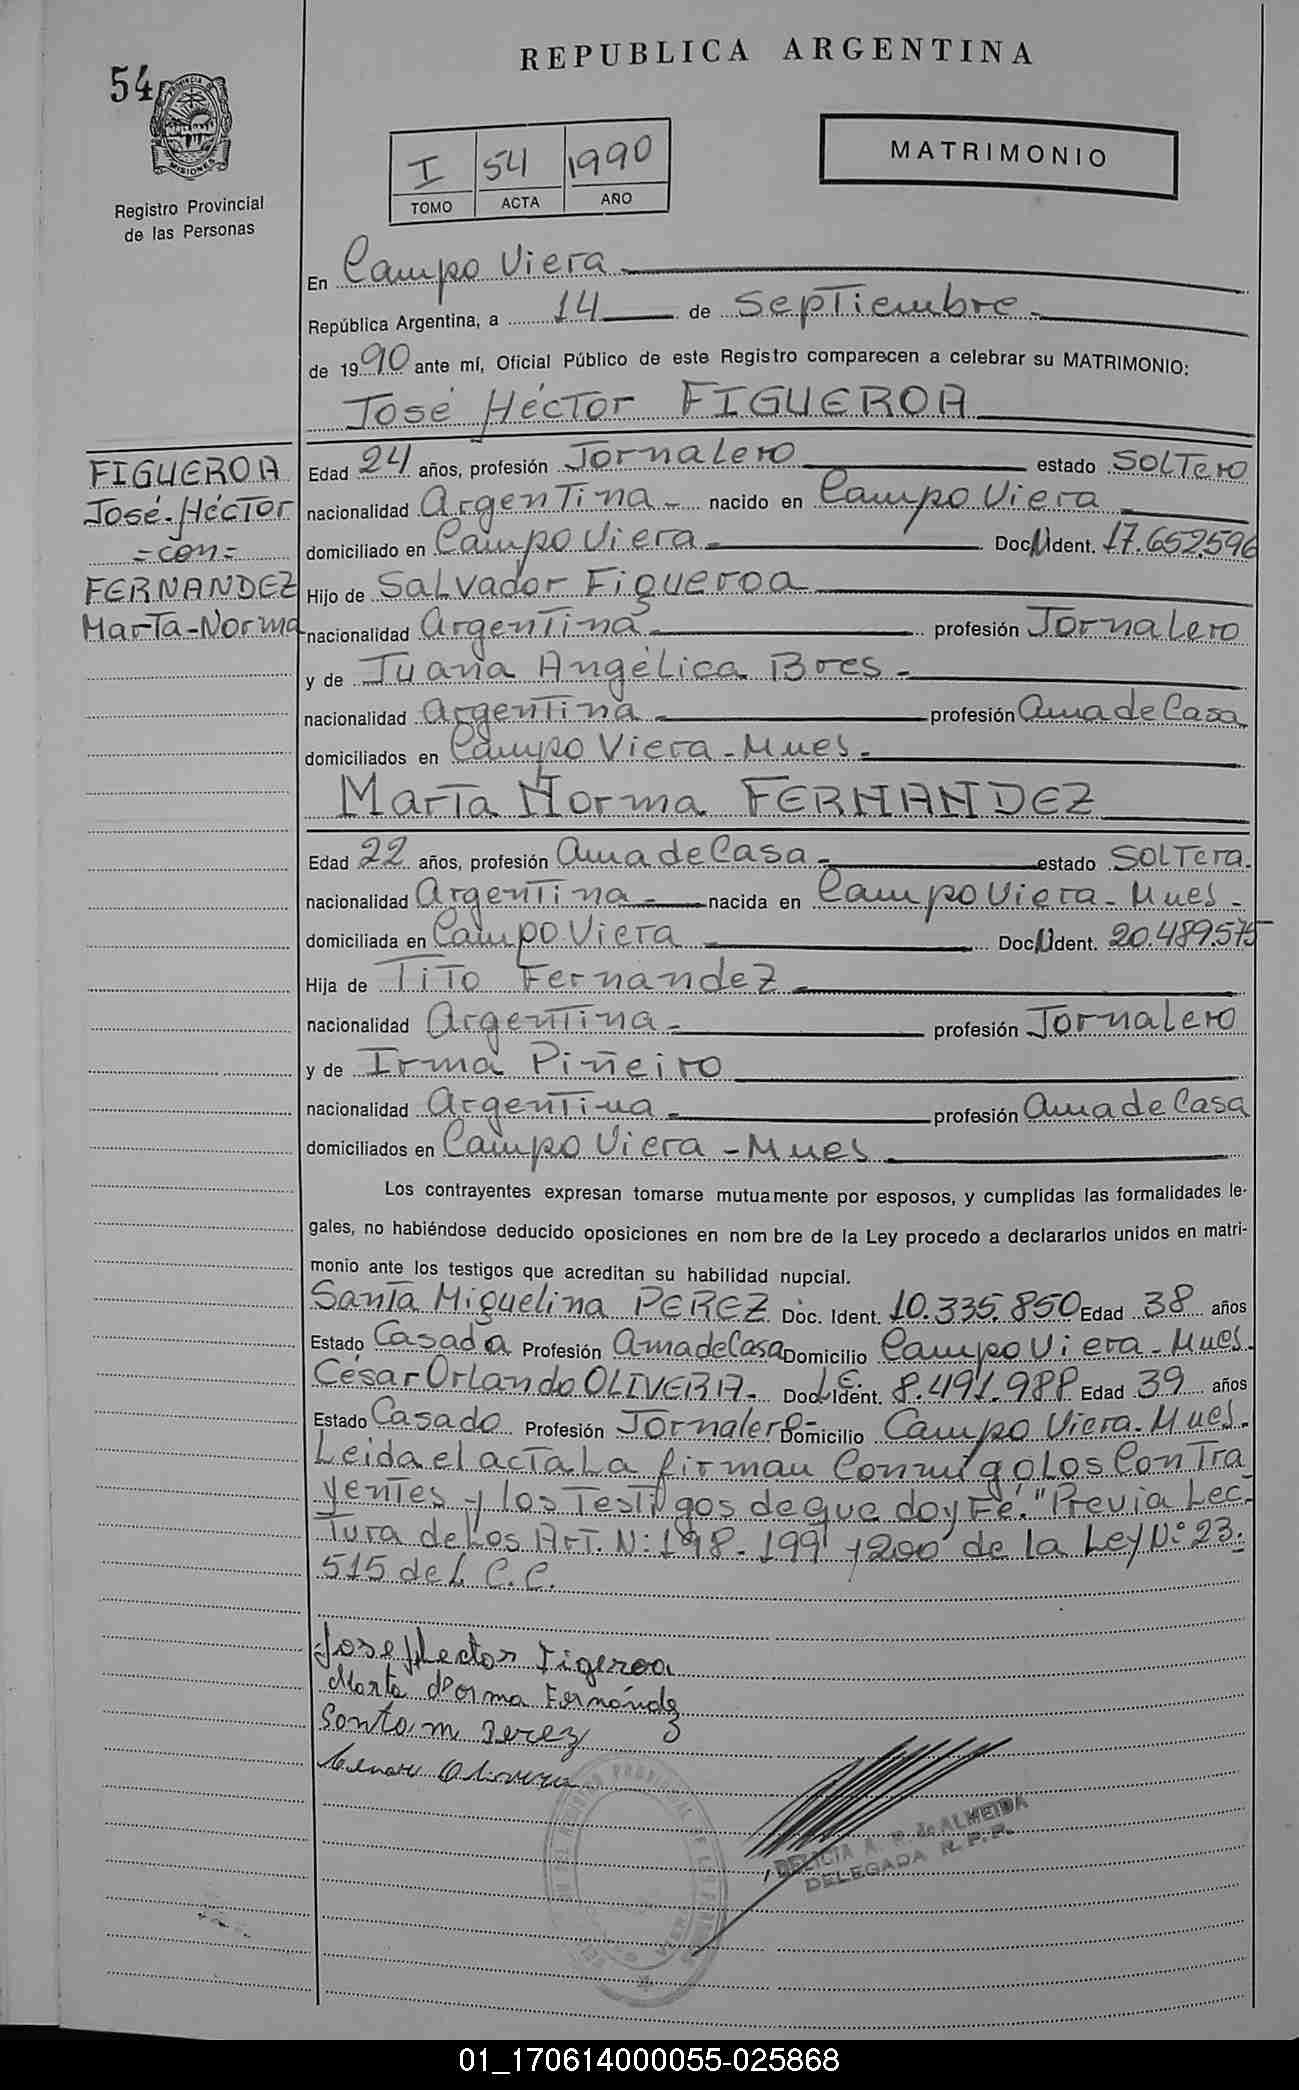 REPUBLICA ARGENTINA
54
PROVINCIA
MISIONES
Registro Provincial
de las Personas
I 54 1990
TOMO ACTA AÑO
MATRIMONIO
En Campo Viera
República Argentina, a 14 de Septiembre
de 1990 ante mí, Oficial Público de este Registro comparecen a celebrar su MATRIMONIO:
José Héctor FIGUEROA
FIGUEROA
José-Héctor
=con=
FERNANDEZ
Marta-Norma
Edad 24 años, profesión Jornalero estado Soltero
nacionalidad Argentina nacido en Campo Viera
domiciliado en Campo Viera Doc. Ident. 17.652.596
Hijo de Salvador Figueroa
nacionalidad Argentina profesión Jornalero
y de Juana Angélica Bres
nacionalidad Argentina profesión Ama de Casa
domiciliados en Campo Viera - Mnes.
Marta Norma FERNANDEZ
Edad 22 años, profesión Ama de Casa estado Soltera.
nacionalidad Argentina nacida en Campo Viera - Mnes -
domiciliada en Campo Viera Doc. Ident. 20.489.575
Hija de Tito Fernandez
nacionalidad Argentina profesión Jornalero
y de Irma Piñeiro
nacionalidad Argentina profesión Ama de Casa
domiciliados en Campo Viera - Mnes
Los contrayentes expresan tomarse mutuamente por esposos, y cumplidas las formalidades le-
gales, no habiéndose deducido oposiciones en nom bre de la Ley procedo a declararlos unidos en matri-
monio ante los testigos que acreditan su habilidad nupcial.
Santa Miguelina PEREZ Doc. Ident. 10.335.850 Edad 38 años
Estado Casada Profesión Ama de Casa Domicilio Campo Viera - Mnes.
César Orlando OLIVERA - Doc. Ident. L.E. 8.491.988 Edad 39 años
Estado Casado Profesión Jornalero- Domicilio Campo Viera - Mnes.
Leida el acta la firman Conmigo los Contra
yentes y los Testigos de que doy Fé. "Previa Lec-
tura de los Art. N: 198 - 199 y 200 de la Ley N° 23.
515 del C.C.
Jose Hector Figeroa
Marta Norma Fernández
Santa m Perez
Olivera
DELICIA A. R. de ALMEIDA
DELEGADA R. P. P.
01_170614000055-025868